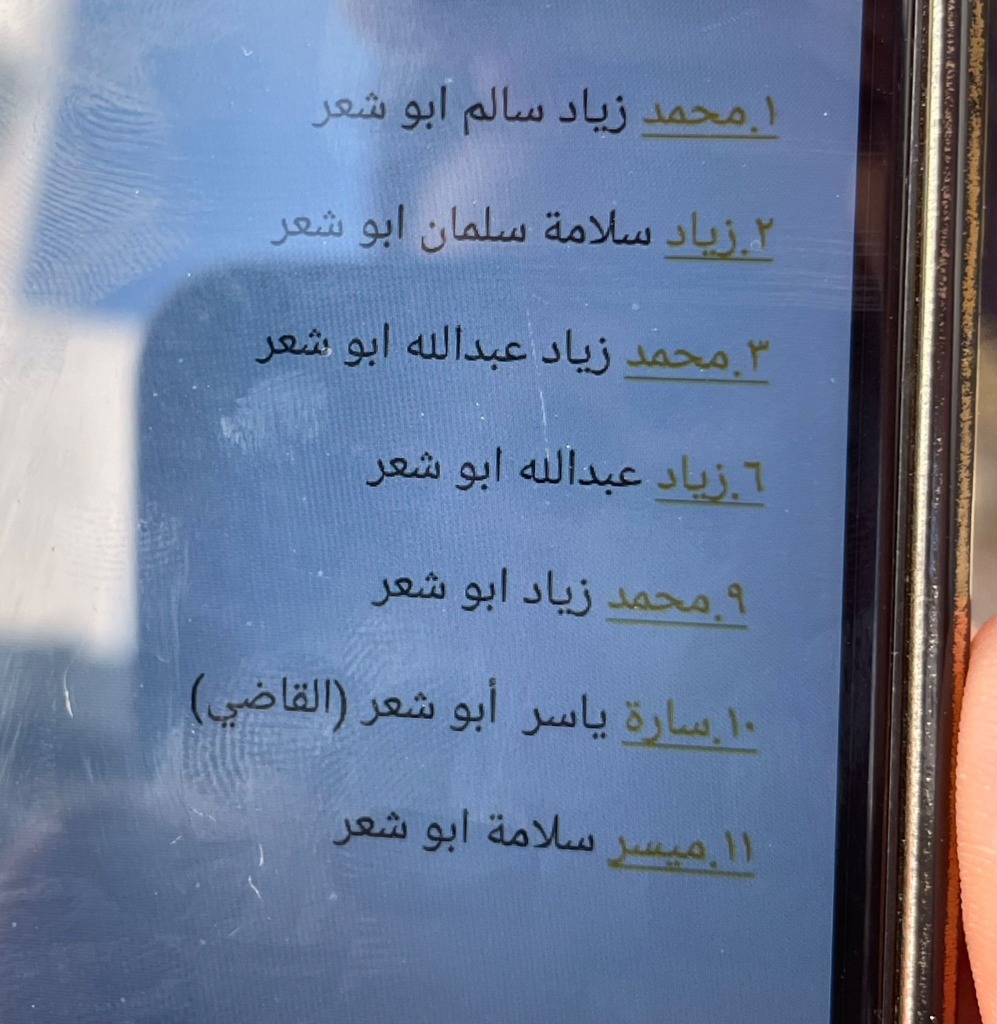 ١.محمد زياد سالم ابو شعر
٢.زياد سلامة سلمان ابو شعر
٣.محمد زياد عبدالله ابو شعر
٦.زياد عبدالله ابو شعر
٩.محمد زياد ابو شعر
١٠.سارة ياسر أبو شعر (القاضي)
١١.ميسر سلامة ابو شعر